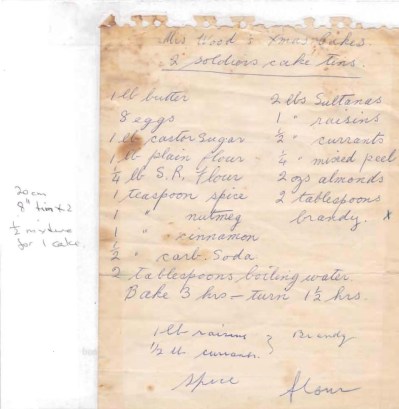 Mrs Wood's Xmas Cakes.
2 soldiers cake tins.
1 lb butter
8 eggs
1 lb castor Sugar
1 lb plain flour
1/4 lb S.R. flour
1 teaspoon spice
1 " nutmeg
1 " cinnamon
" carb. Soda
2 tablespoons boiling water.
Bake 3 hrs – turn 1 1/2 hrs.
2 lbs Sultanas
1 " raisins
1/2 " currants
1/4 " mixed peel
2 ozs almonds
2 tablespoons
brandy. x
20cm
8" tin x 2
1/2 mixture
for 1 cake.
1 lb raisins } Brandy
1/2 lb currants
Spice flour